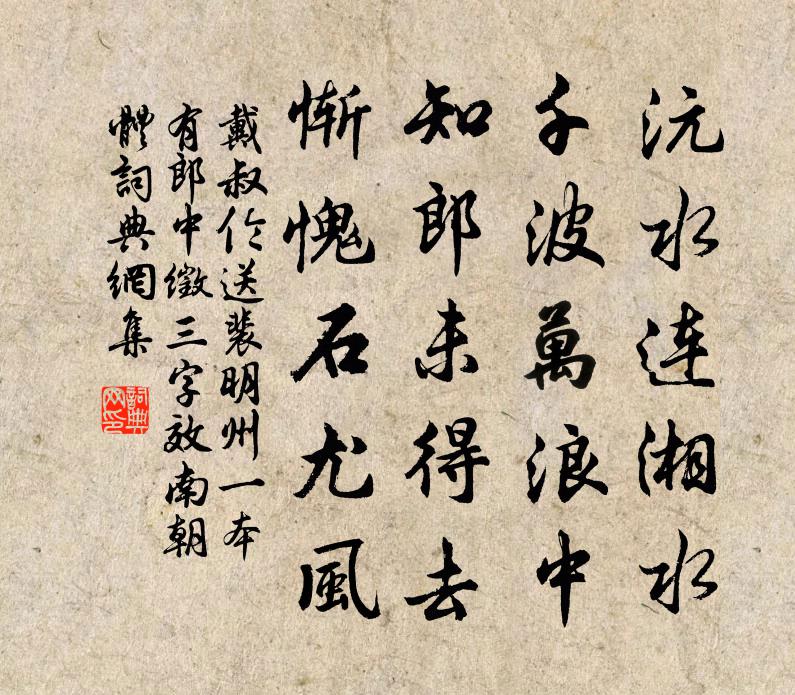 沅水連湘水
千波萬浪中
知郎未得去
慚愧石尤風
戴叔倫送裴明州一本
有郎中徵三字效南朝
體詞典網集
詞典网印